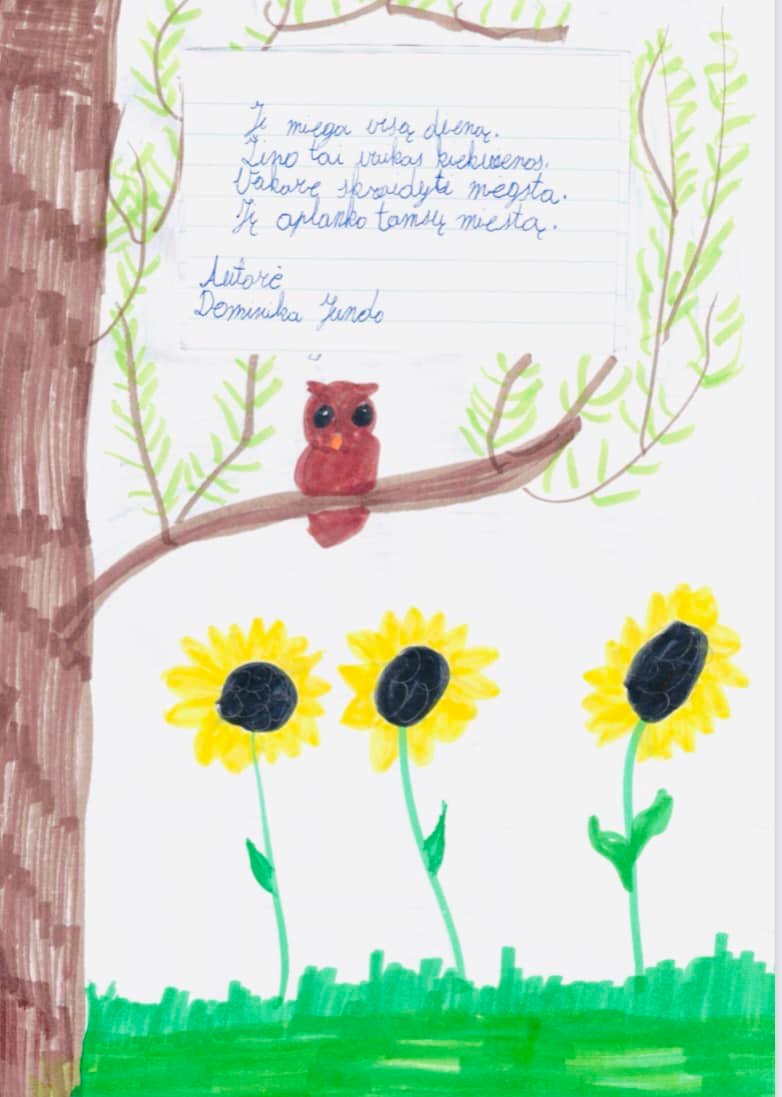 Ji miega visą dieną.
Žino tai vaikas kiekvienas.
Vakare skraidyti mėgsta.
Ji aplanko tamsų miestą.
Autorė
Dominika Jundo